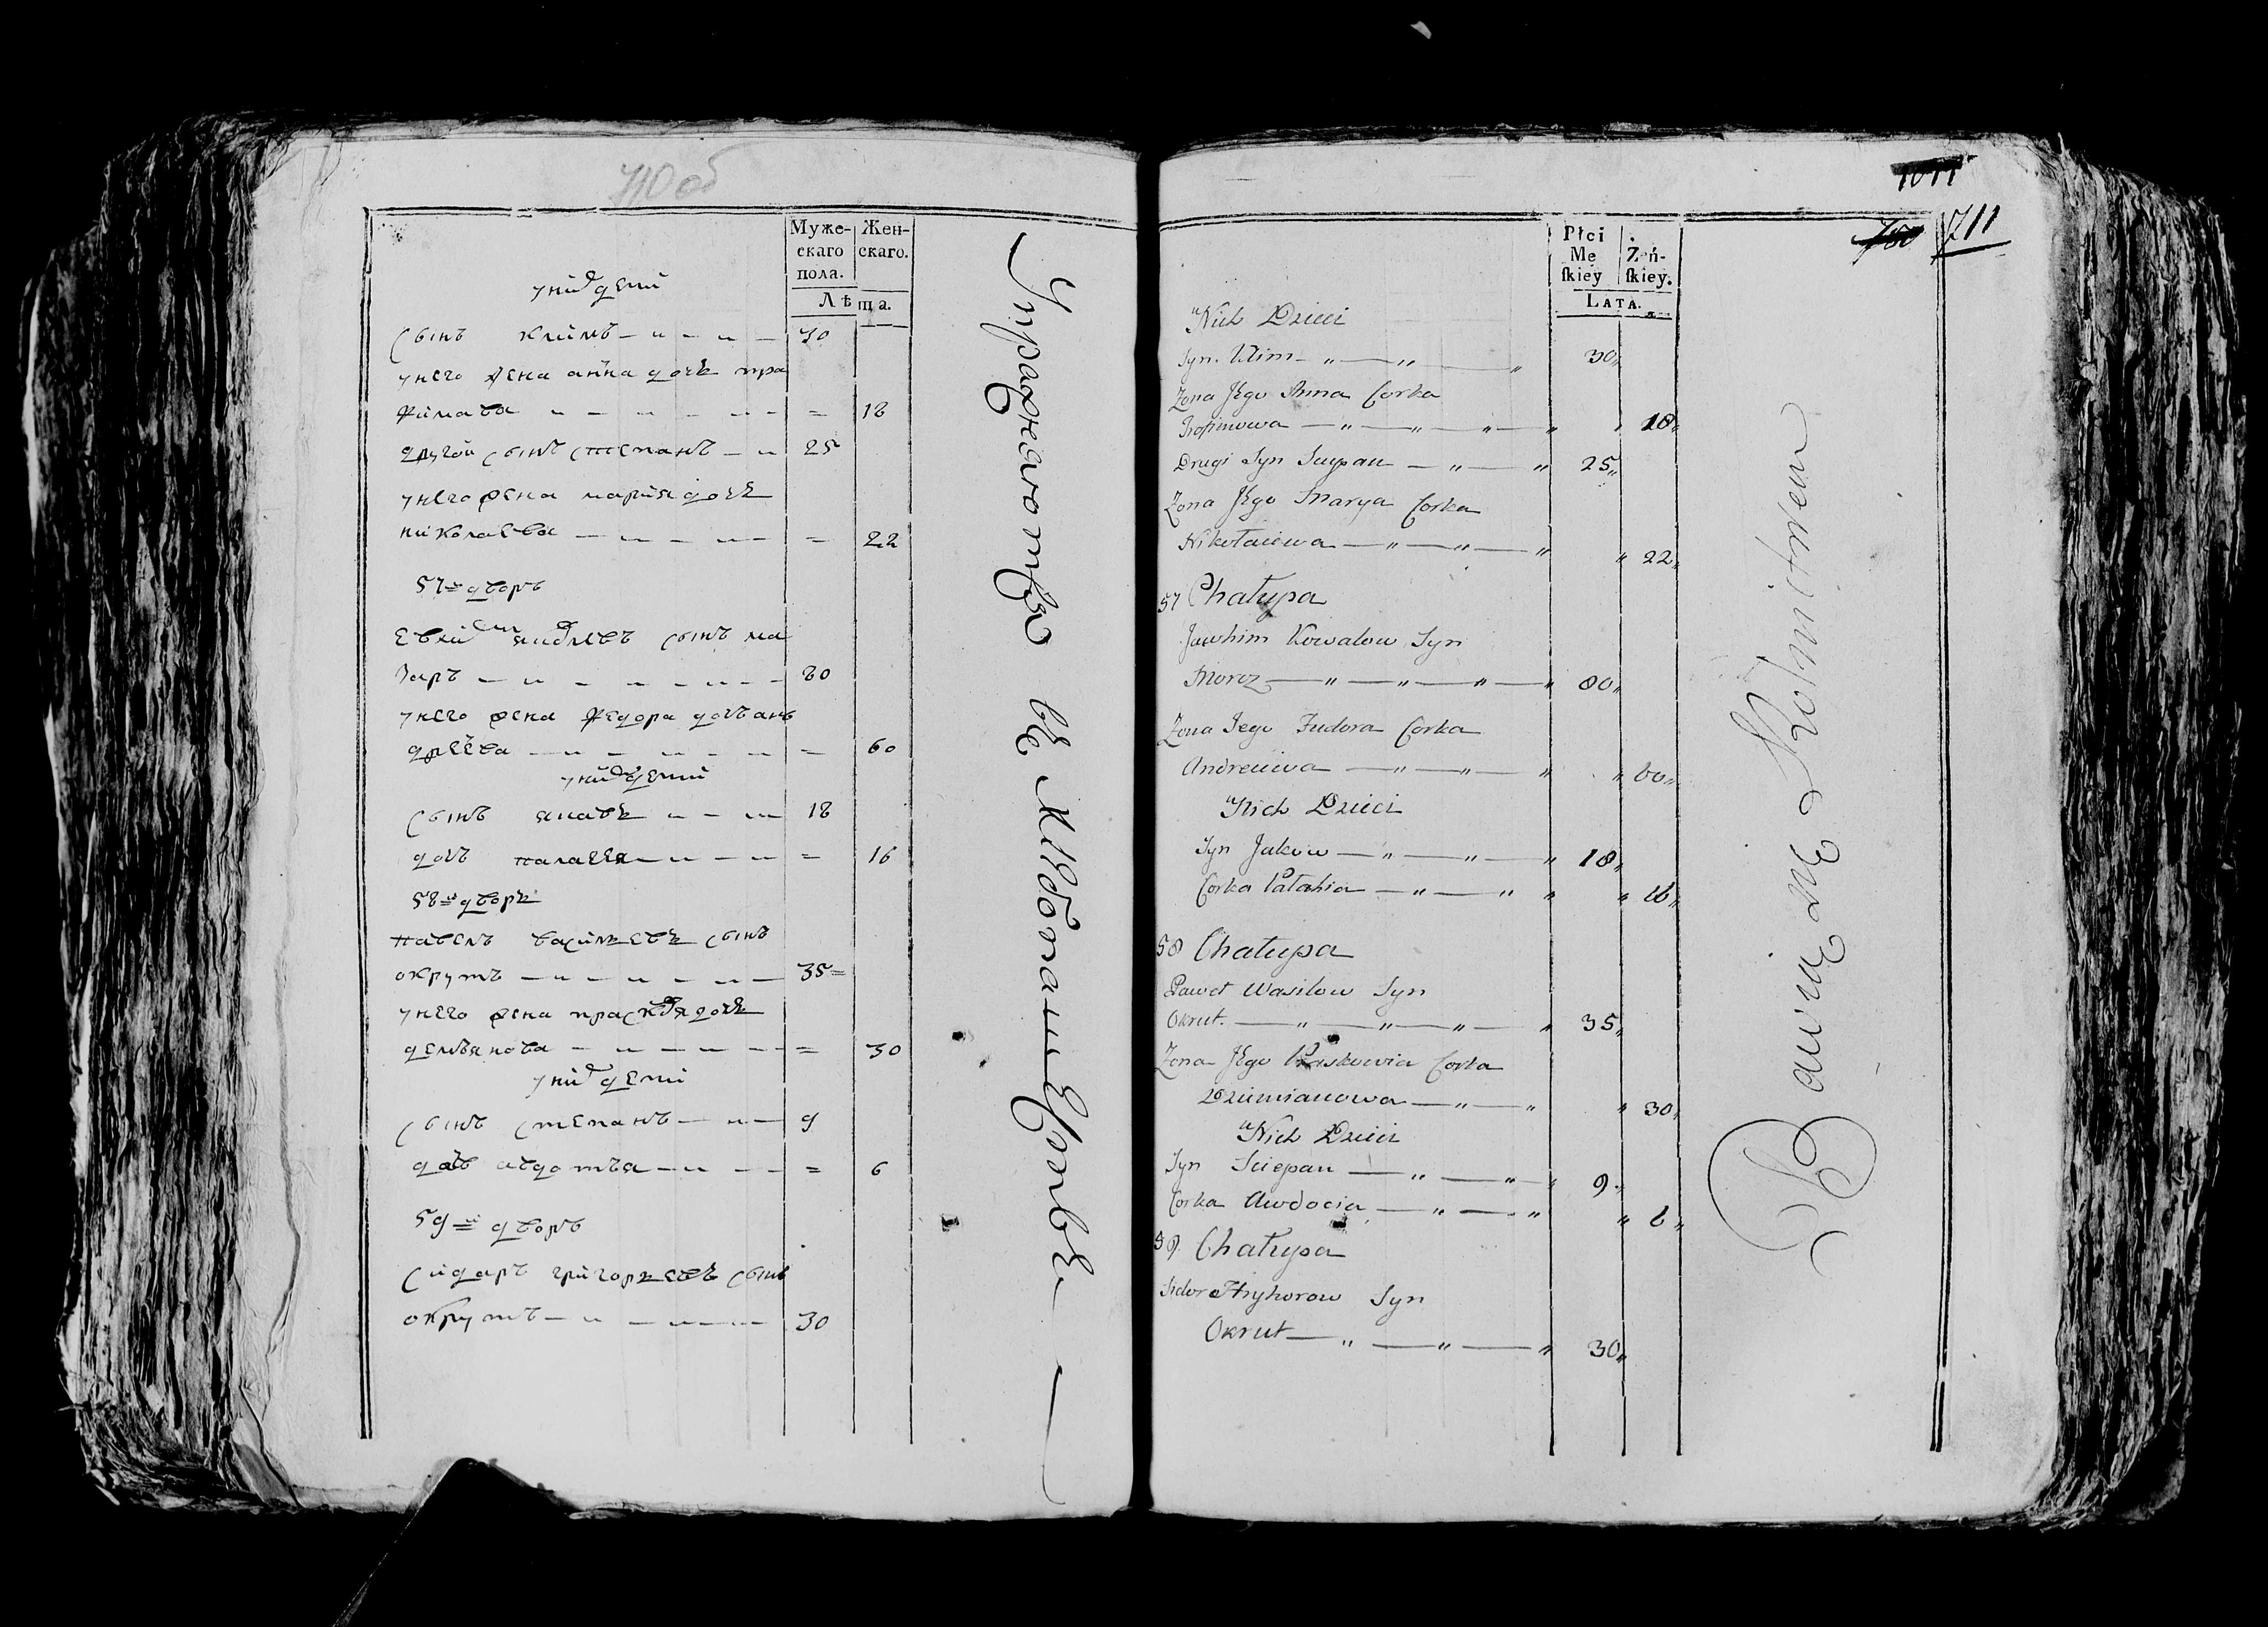 710 об
Муже-
скаго
пола.
Жен-
скаго.
Лѣта.
у них дети
сынъ климъ 30
у него жена анна дочь тра
фимова = 18
другой сынъ степанъ 25
у него жена мария дочь
николаева = 22
57 й дворъ
сынъ ма
заръ 80
у него жена федора дочь ан
дреева = 60
у них дети
сынъ яковъ 18
дочь палагея = 16
58 й дворъ
павелъ василевъ сынъ
окрутъ 35
у него жена прасковя дочь
демьянова = 30
у них дети
сынъ степанъ 9
дочь авдотья = 6
59 й дворъ
сидаръ григорьевъ сынъ
окрутъ 30
Упражняютца въ хлебопашестве
711
Płci
Mę
skiey
Żeń-
skiey.
LATA.
u Nich Dzieci
Syn Klim 30
Zona Jego Anna Corka
Trofimowa 18
Drugi Syn Sciepan 25
Zona Jego Marya Corka
Nikołaiewa 22
57 Chałupa
Jawhim Kowalow Syn
Moroz 80
Zona Jego Fudora Corka
Andreiewa 60
u Nich Dzieci
Syn Jakow 18
Corka Pałahia 16
58 Chałupa
Paweł Wasilow Syn
Okrut 35
Zona Jego Praskowia Corka
Dziemianowa 30
u Nich Dzieci
Syn Sciepan 9
Corka Awdocia 6
59 Chałupa
Sidor Hryhorow Syn
Okrut 30
Bawią się Rolnictwem